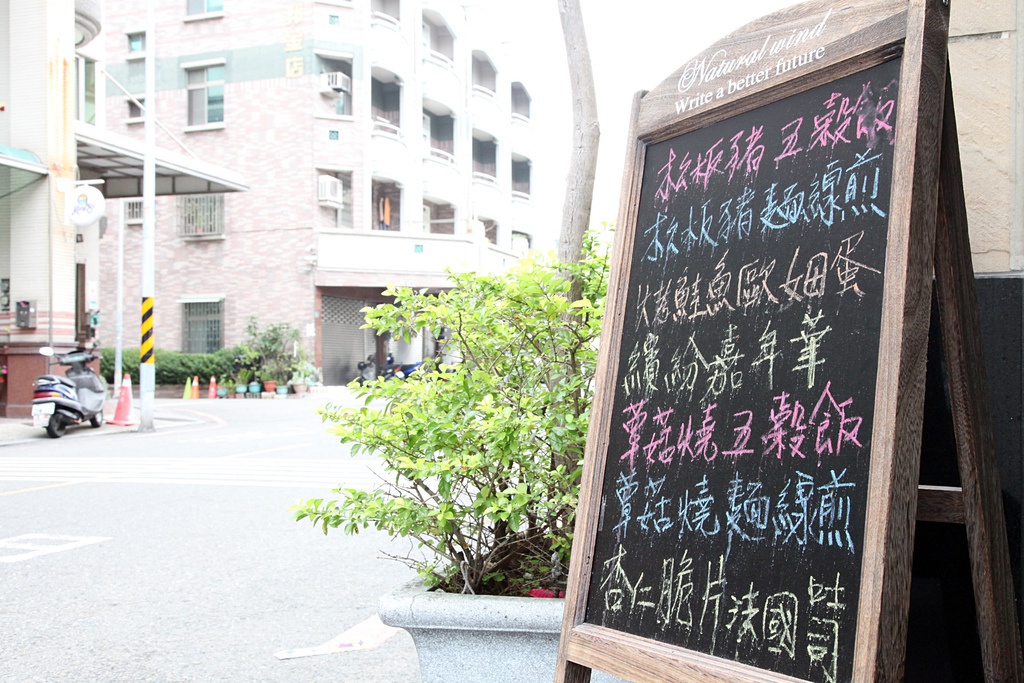 Natural wind
Write a better future
松板豬五穀飯
松板豬麵線煎
烤鮭魚歐姆蛋
繽紛嘉年華
蕈菇燒五穀飯
蕈菇燒麵線煎
杏仁脆片法國吐司